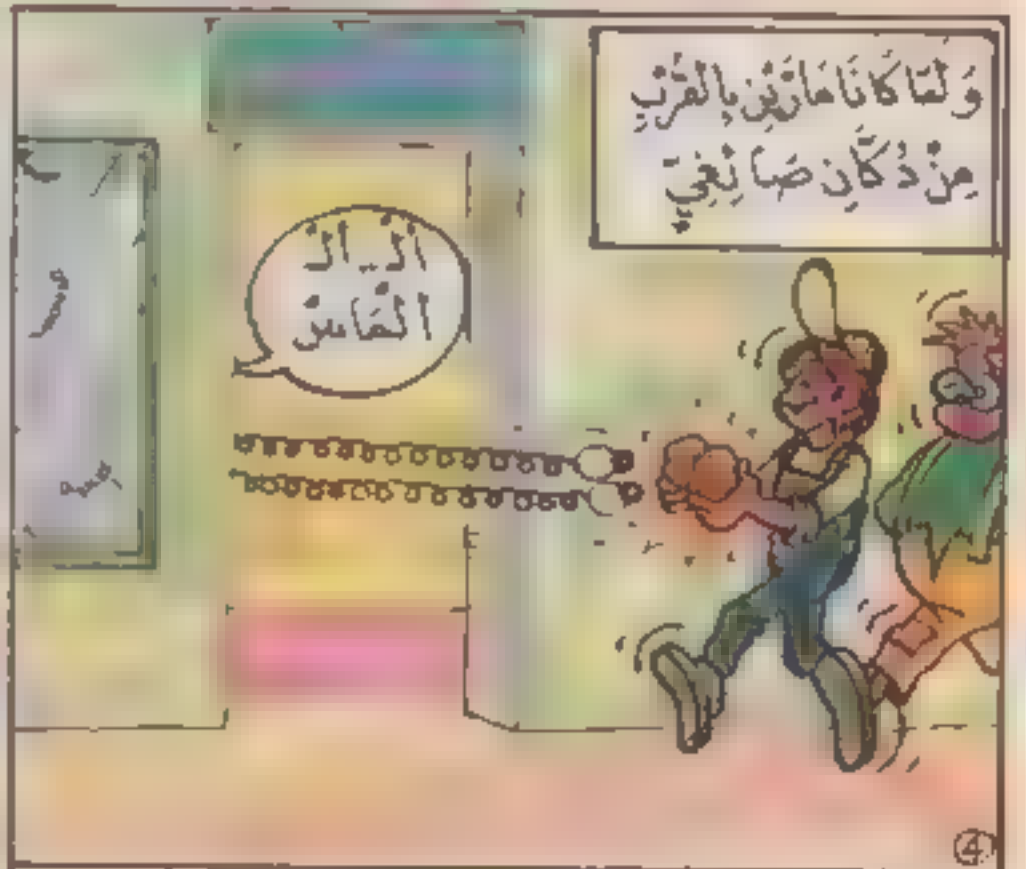 وَلَمَّا كَانَا مَارَّيْنِ بِالْقُرْبِ
مِنْ دُكَّانِ صَائِغِيٍّ
اَلْ.. اَلْ
اَلْمَاسْ
④